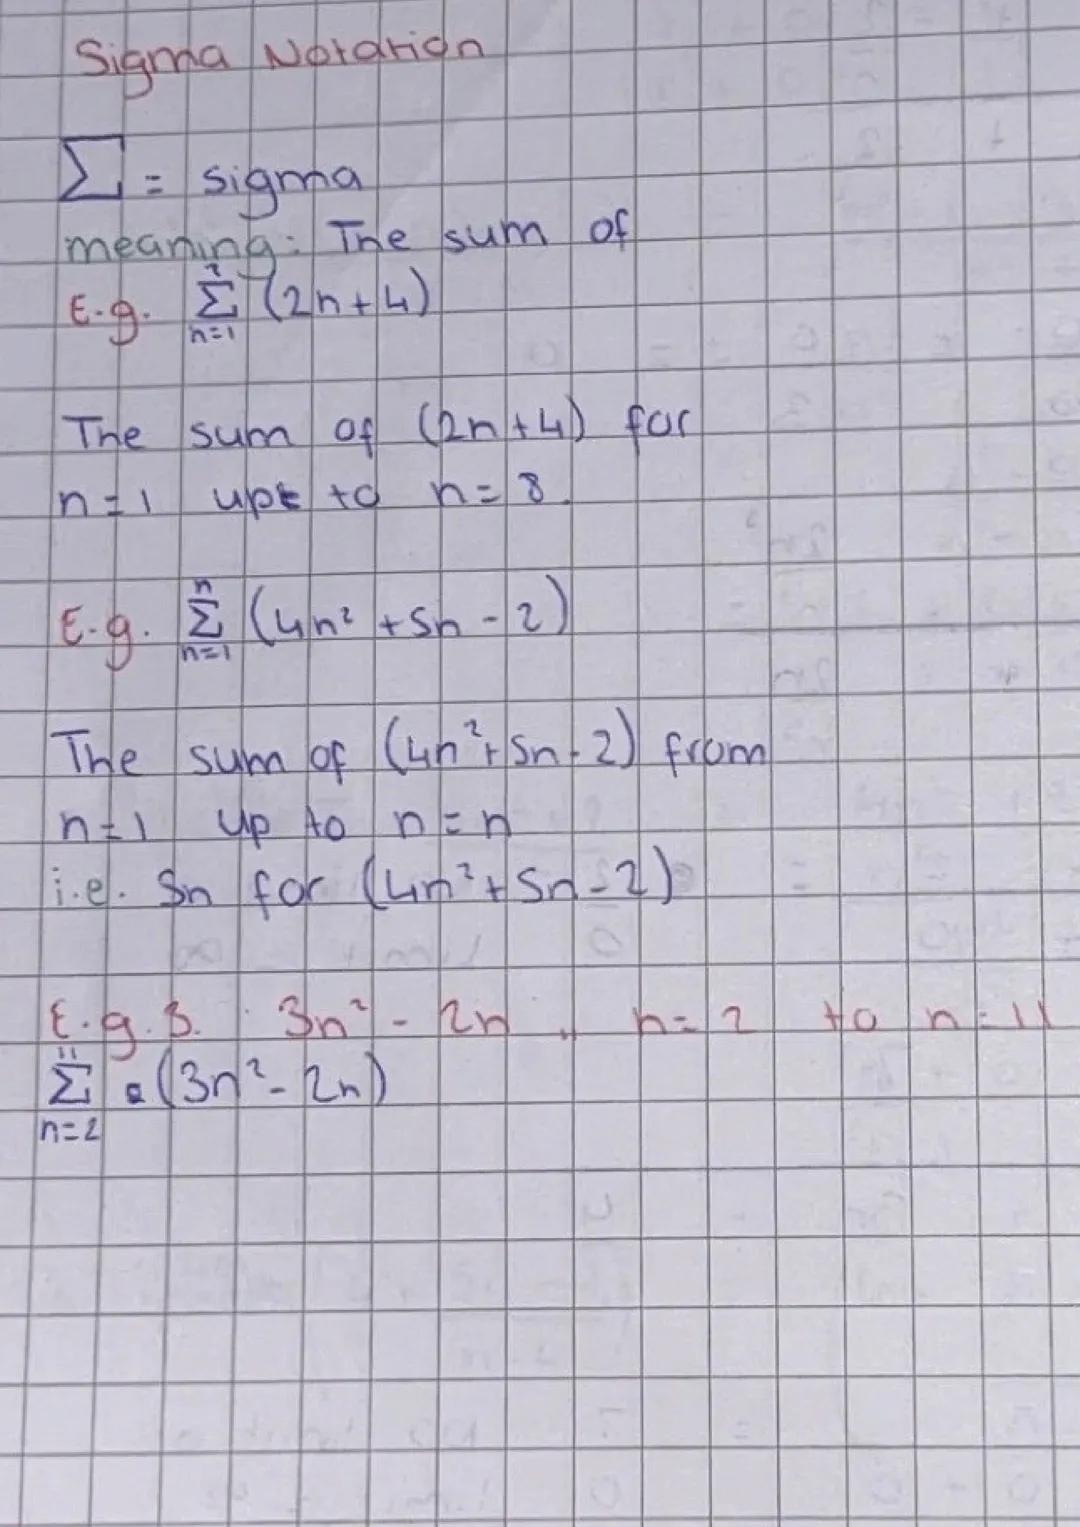 Sigma Notation
Σ = sigma
meaning: The sum of
E.g. Σ (2n+4)
n=1
The sum of (2n+4) for
n=1 upt to n=8.
n
E.g. Σ (4n² +5n - 2)
n=1
The sum of (4n²+5n-2) from
n=1 up to n=n
i.e. Sn for (4n²+5n-2)
E.g.3. 3n² - 2n, n=2 to n=11
11
Σ (3n²- 2n)
n=2